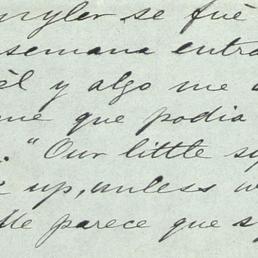 se fué
semana entra
él y algo me
me que podia
. "Our little
up, unless w
Me parece que s